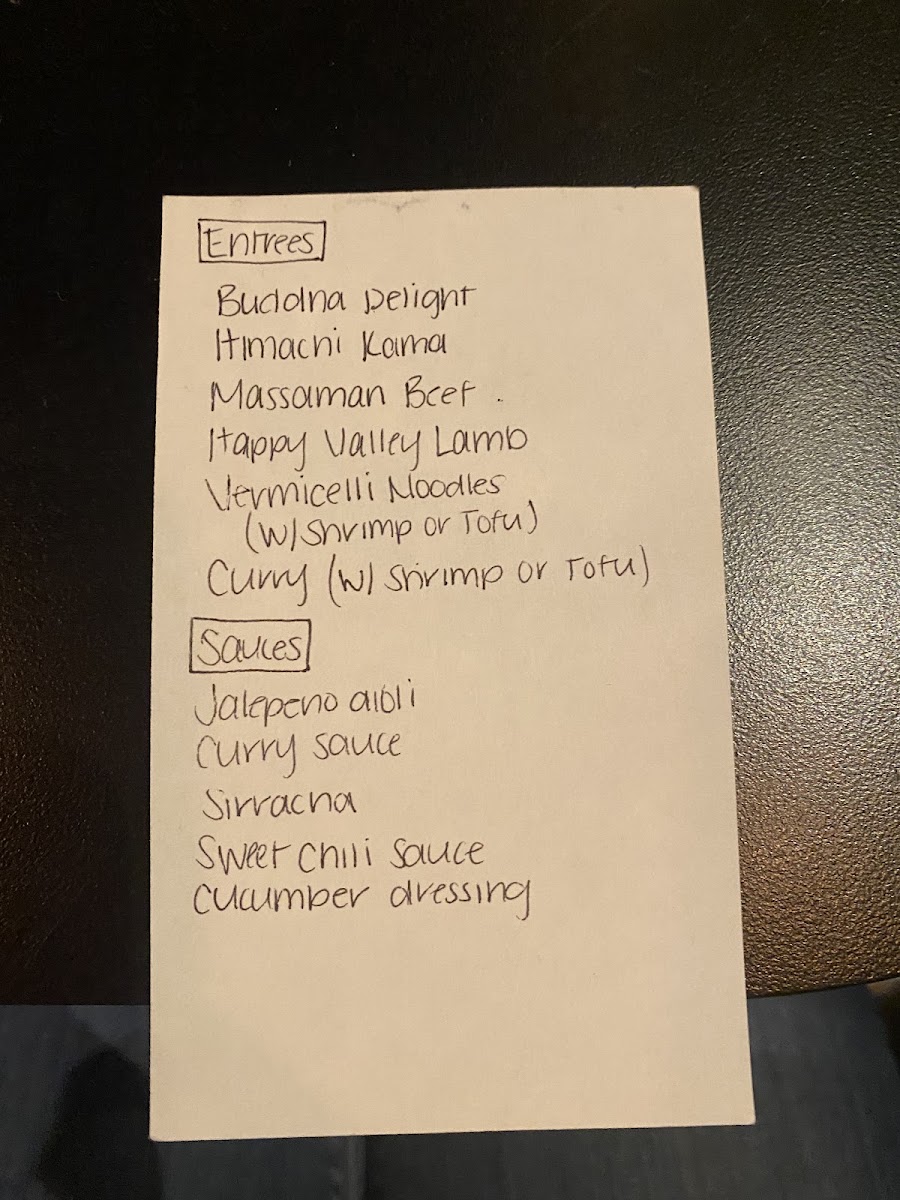 Entrees
Buddha Delight
Himachi Kama
Massaman Beef
Happy Valley Lamb
Vermicelli Noodles
(w/ Shrimp or Tofu)
Curry (w/ Shrimp or Tofu)
Sauces
Jalepeno aioli
Curry sauce
Sirracha
Sweet Chili Sauce
Cucumber dressing